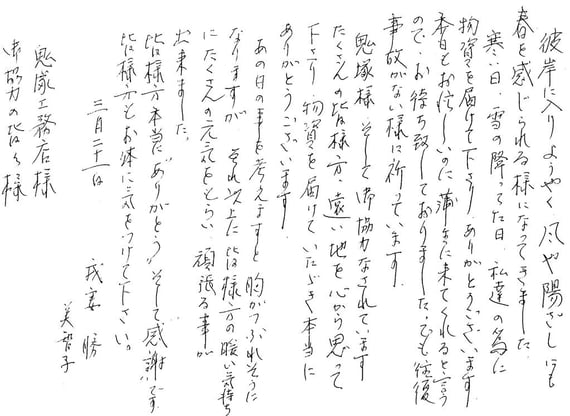 彼岸に入りようやく風や陽ざしにも
春を感じられる様になってきました。
寒い日、雪の降ってた日、私達の為に
物資を届けて下さり、ありがとうございます。
毎日お忙しいのに蒲まに来てくれると言う
ので、お待ち致しておりました。でも往復
事故がない様に祈っています。
鬼塚様、そして御協力なされています
たくさんの皆様方、遠い地を心から思って
下さり、物資を届けていただき本当に
ありがとうございます。
あの日の事を考えますと胸がつぶれそうに
なりますが、それ以上に皆様方の暖い気持ち
にたくさんの元気をもらい、頑張る事が
出来ました。
皆様方本当に“ありがとう”そして“感謝”です。
皆様方もお体に気をつけて下さい。
三月二十一日
勝
美智子
鬼塚工務店様
御協力の皆々様